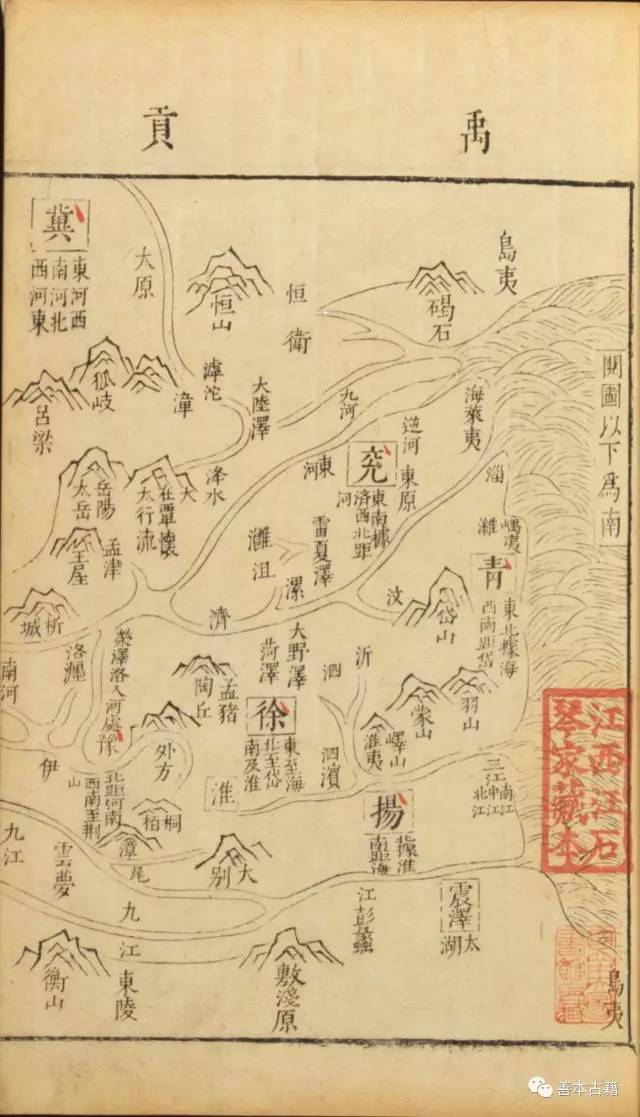 禹貢
島夷
碣石
恒衛
恒山
大原
冀
東河西
南河北
西河東
關圖以下為南
海萊夷
九河
逆河
大陸澤
滹沱
漳
狐岐
呂梁
兗
東南據
濟西北距
河
東原
東河
洚水
大行
覃懷
岳陽
太岳
淄
濰
嵎夷
青
東北據海
西南距岱
雷夏澤
灉沮
漯
孟津
王屋
汶
岱山
濟
大野澤
菏澤
析城
滎澤洛入河處
洛瀍
南河
沂
泗
羽山
蒙山
嶧山
淮夷
泗濱
孟豬
陶丘
徐
東至海
北至岱
南及淮
豫
北距河南
西南至荊
山
外方
伊
淮
三江
南江
中江
北江
揚
據淮
南距海
桐柏
大別
漳尾
雲夢
九江
九江
東陵
衡山
敷淺原
江
彭蠡
震澤
太湖
島夷
江西汪石
琴家藏本
善本古籍